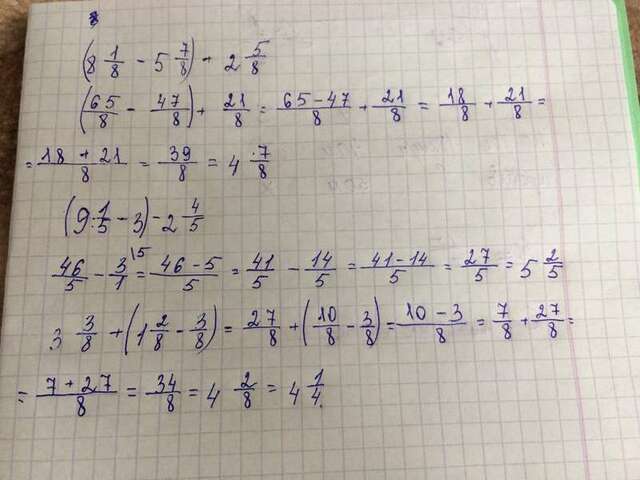 (8 1/8 - 5 7/8) + 2 5/8
(65/8 - 47/8) + 21/8 = 65-47/8 + 21/8 = 18/8 + 21/8 =
= 18+21/8 = 39/8 = 4 7/8
(9 1/5 - 3) - 2 4/5
46/5 - 3/1 \5 = 46-5/5 = 41/5 - 14/5 = 41-14/5 = 27/5 = 5 2/5
3 3/8 + (1 2/8 - 3/8) = 27/8 + (10/8 - 3/8) = 10-3/8 = 7/8 + 27/8 =
= 7+27/8 = 34/8 = 4 2/8 = 4 1/4.